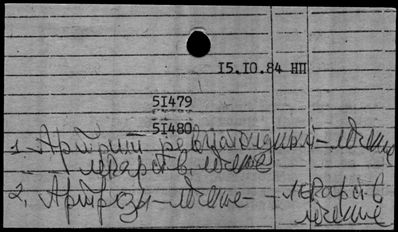 15.10.84 НП
51479
51480
1. Артрит ревматоидный – лечение
– лекарств. лечение
2. Артрозы – лечение – – лекарств
лечение